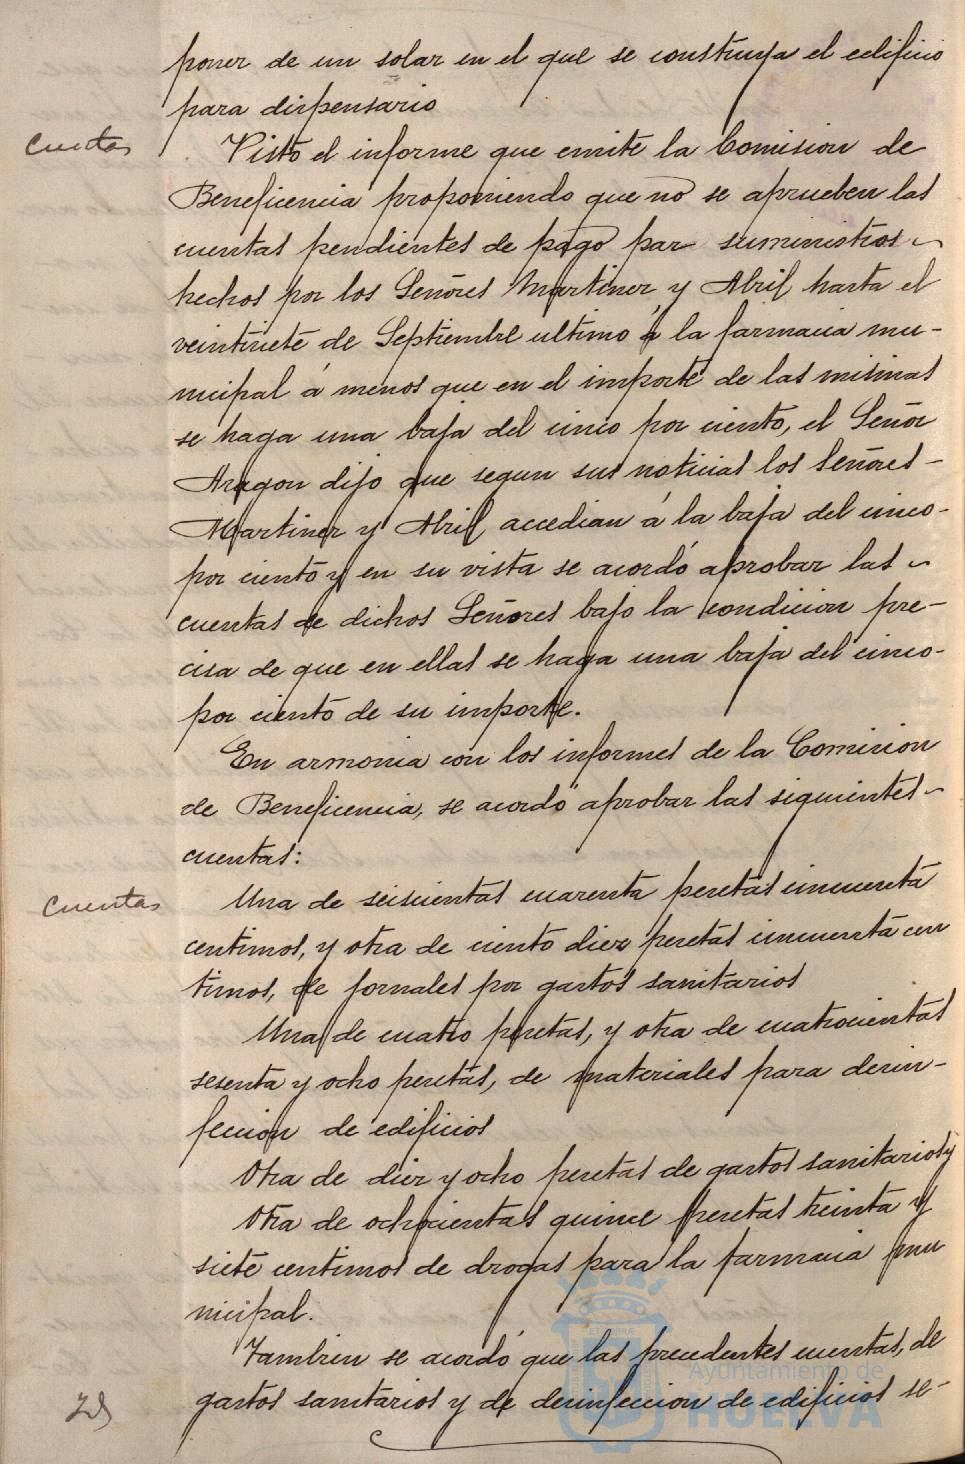 poner de un solar en el que se construya el edificio
para dispensario
Cuentas
Visto el informe que emite la Comision de
Beneficencia proponiendo que no se aprueben las
cuentas pendientes de pago por suministros
hechos por los Señores Martinez y Abril hasta el
veintisiete de Septiembre ultimo á la farmacia mu-
nicipal á menos que en el importe de las mismas
se haga una baja del cinco por ciento, el Señor
Aragon dijo que segun sus noticias los Señores-
Martinez y Abril accedian á la baja del cinco-
por ciento y en su vista se acordó aprobar las
cuentas de dichos Señores bajo la condicion pre-
cisa de que en ellas se haga una baja del cinco-
por ciento de su importe.
En armonia con los informes de la Comision
de Beneficencia, se acordó aprobar las siguientes
cuentas:
Cuentas
Una de seiscientas cuarenta pesetas cincuenta
centimos, y otra de ciento diez pesetas cincuenta cen
timos, de jornales por gastos sanitarios
Una de cuatro pesetas, y otra de cuatrocientas
sesenta y ocho pesetas, de materiales para desin-
feccion de edificios
Otra de diez y ocho pesetas de gastos sanitarios y
Otra de ochocientas quince pesetas treinta y
siete centimos de drogas para la farmacia mu
nicipal.
Tambien se acordó que las precedentes cuentas, de
gastos sanitarios y de desinfeccion de edificios se-
Ayuntamiento de
HUELVA